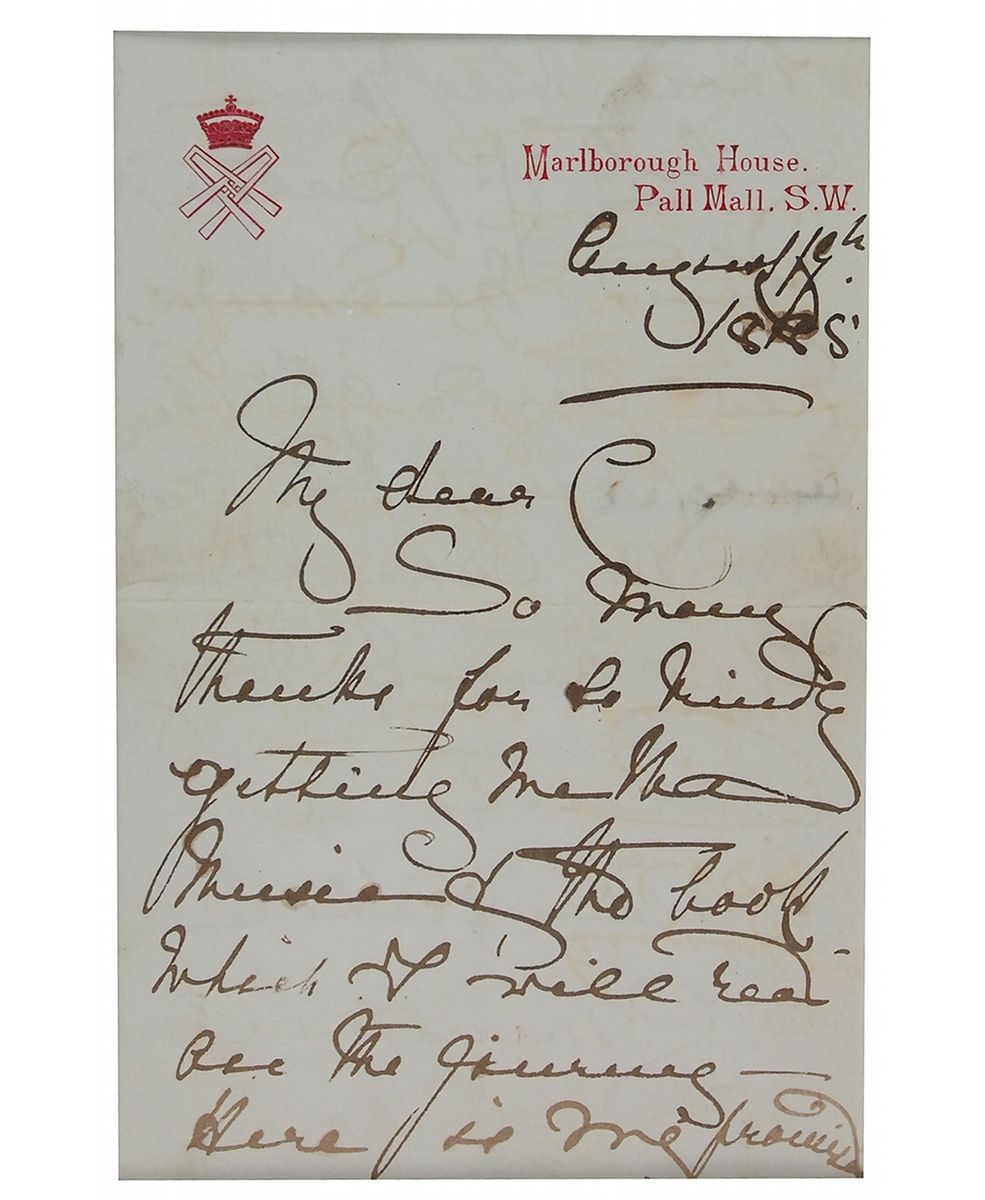 Marlborough House.
Pall Mall. S.W.
August 19th
1885
My dear C
So many
thanks for so kindly
getting me the
Music & the book
which I will read
on the journey —
Here is my promised